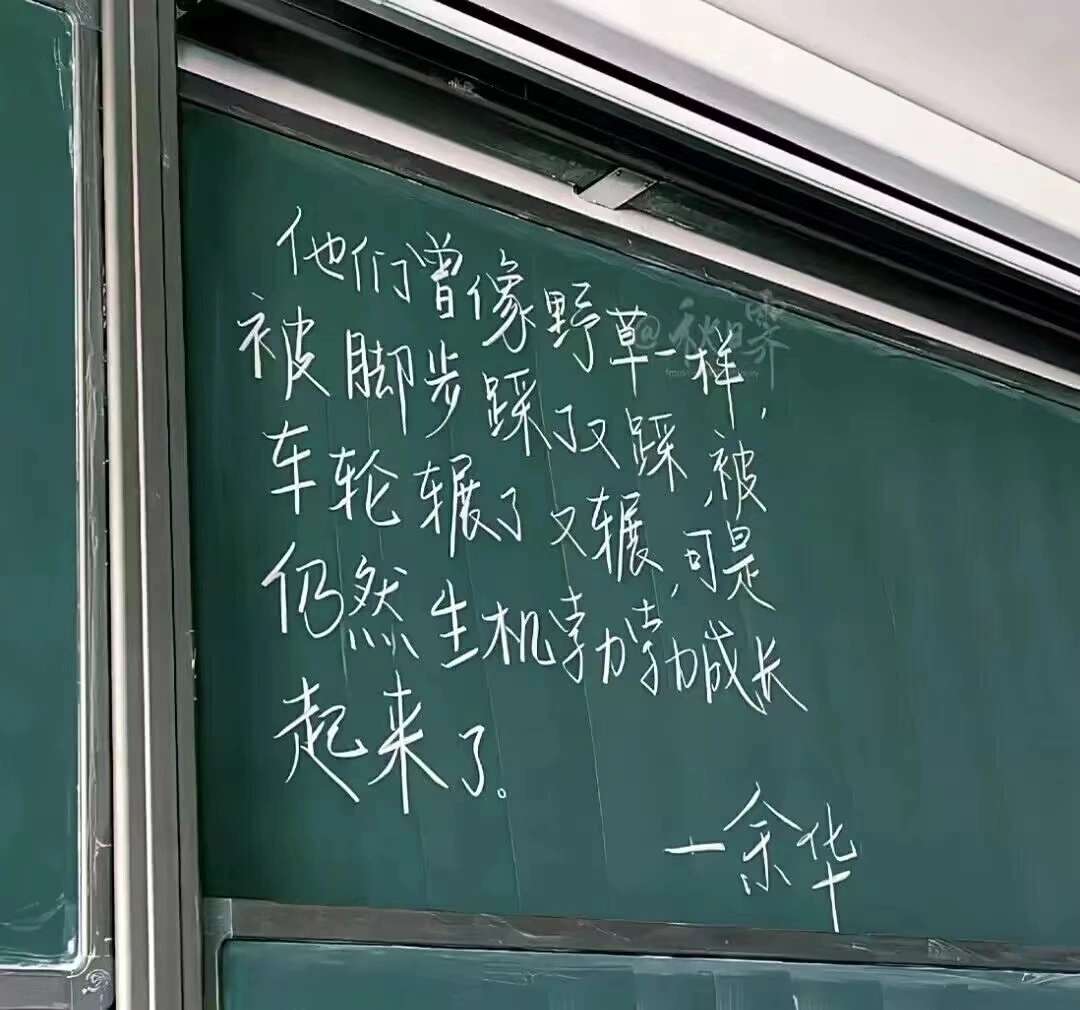 他们曾像野草一样，
被脚步踩了又踩，被
车轮辗了又辗，可是
仍然生机勃勃成长
起来了。
一余华